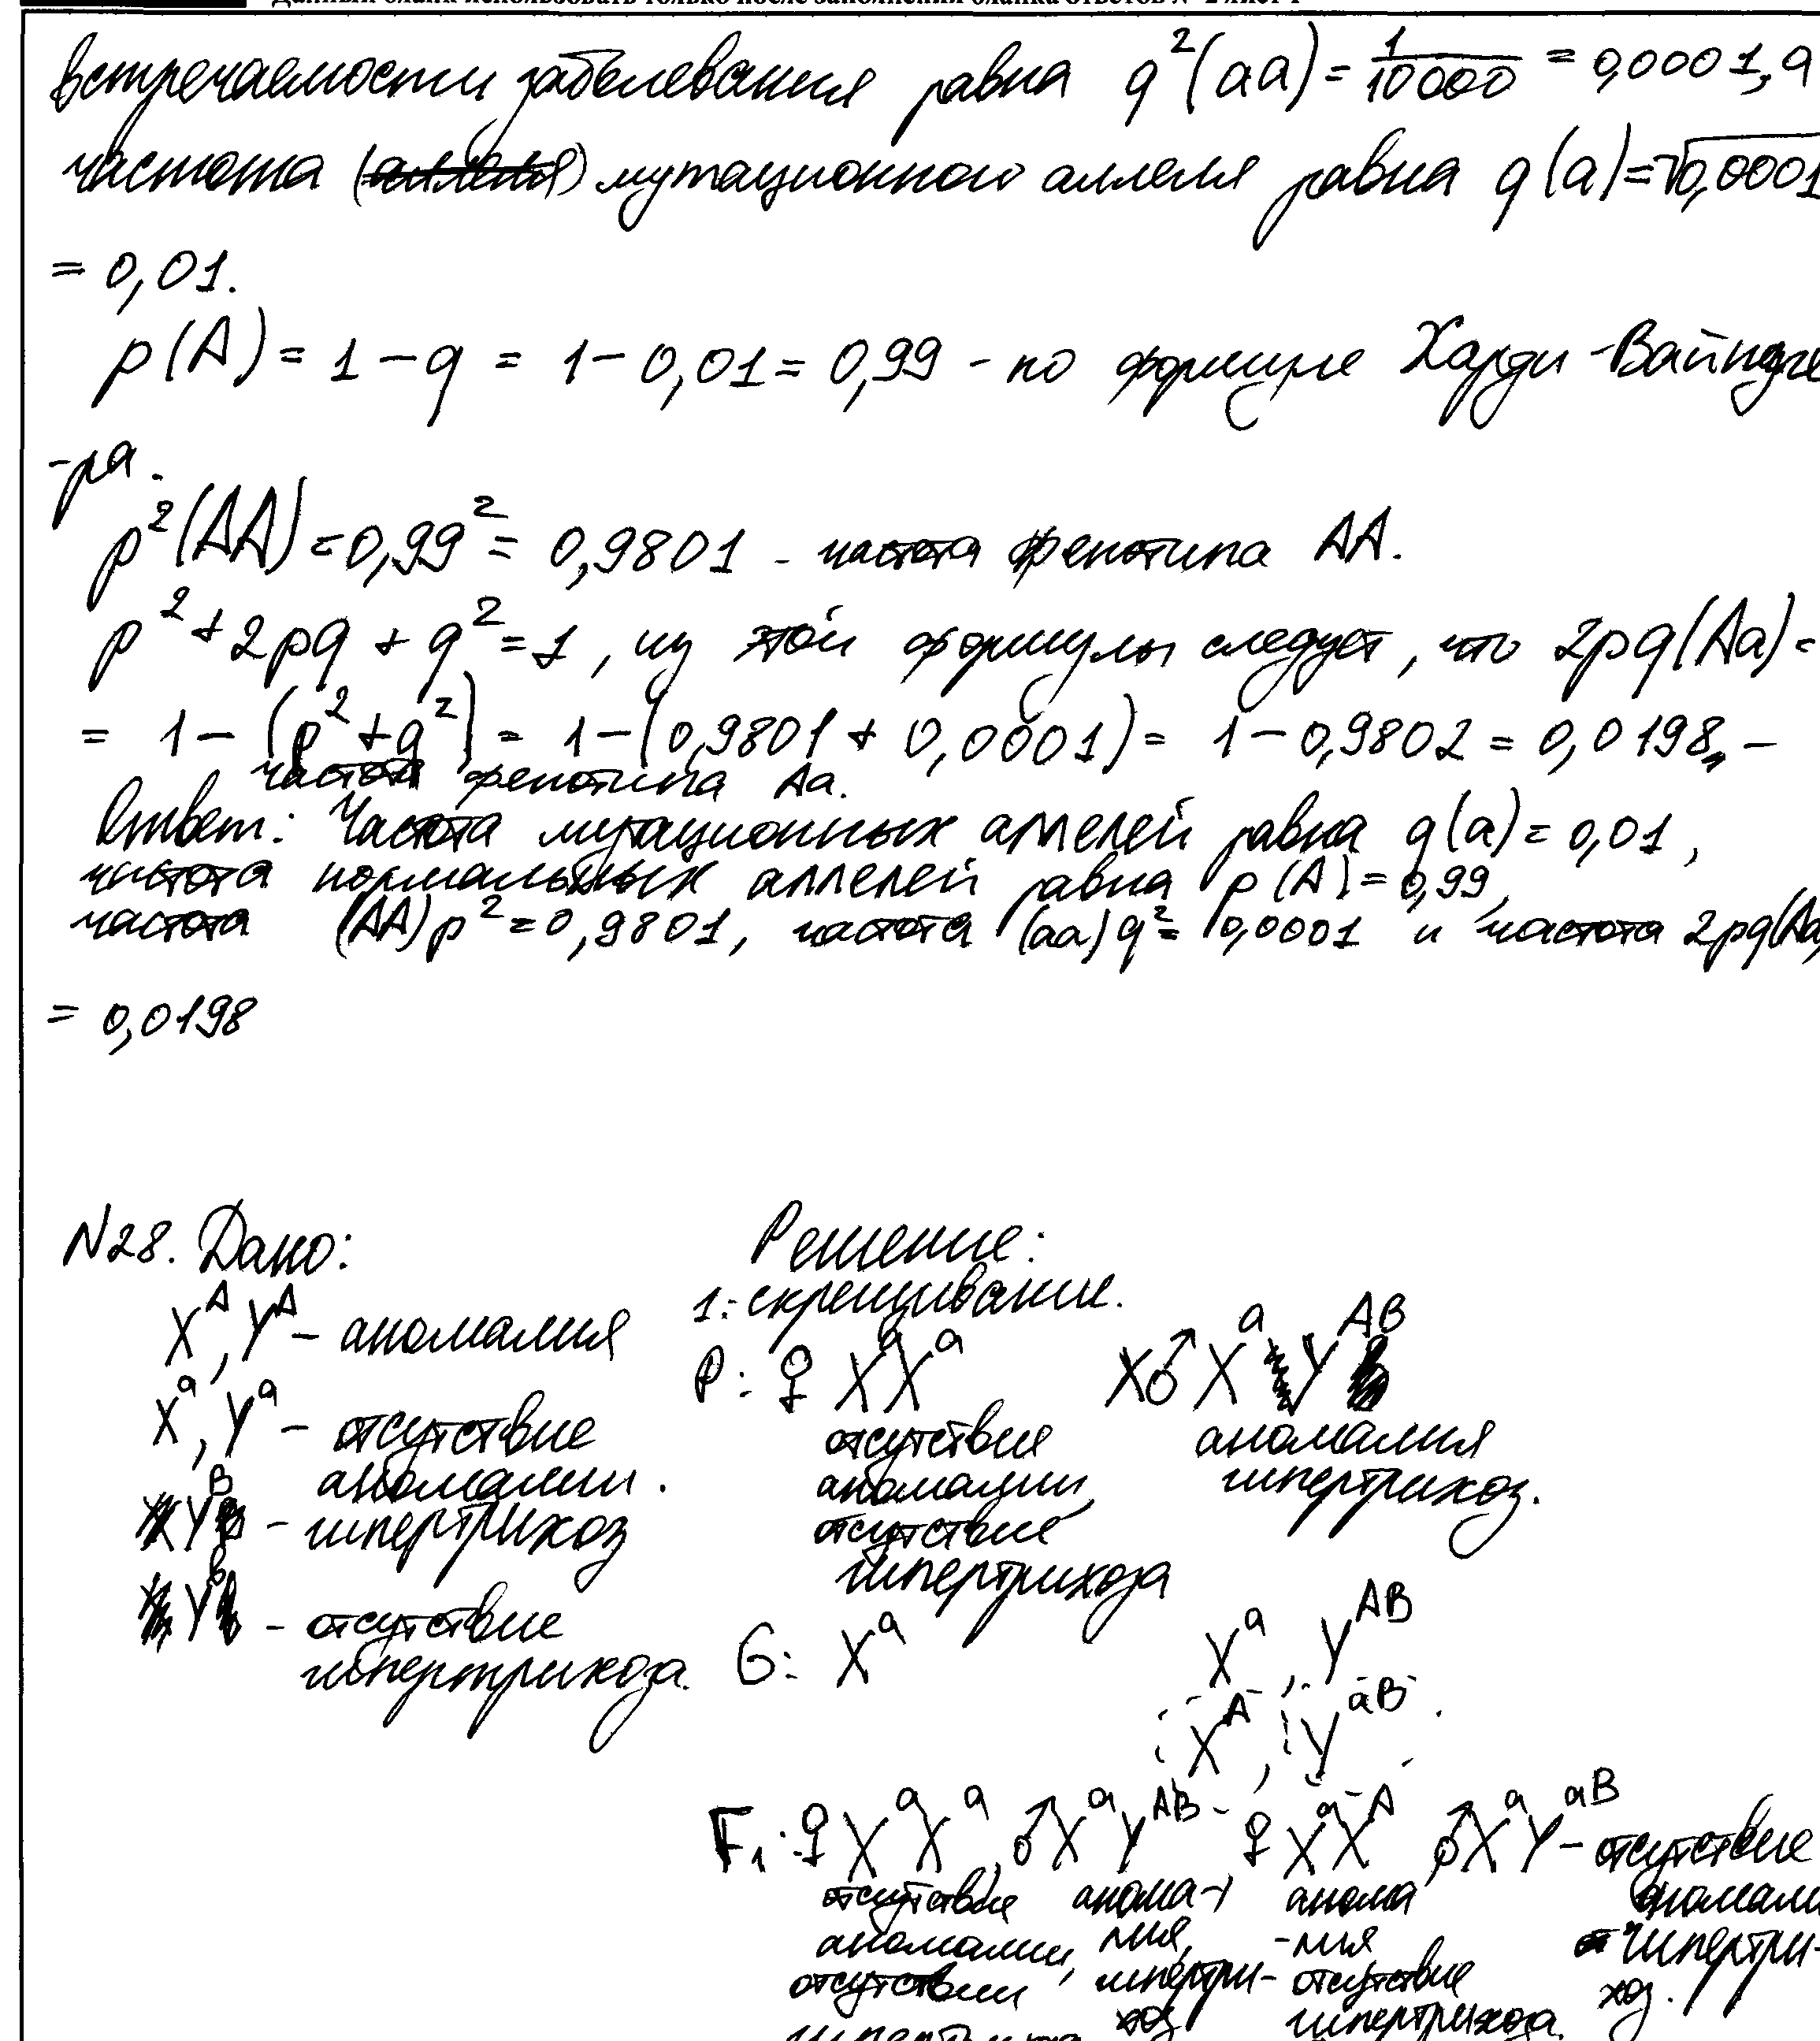 Данный бланк использовать только после заполнения бланка ответов № 2 лист 1
встречаемости заболевания равна q²(aa) = 1/10000 = 0,0001, а
частота мутационного аллеля равна q(a) = √0,0001
= 0,01.
p(A) = 1 - q = 1 - 0,01 = 0,99 - по формуле Харди-Вайнбе
-ра.
p²(AA) = 0,99² = 0,9801 - частота фенотипа AA.
p² + 2pq + q² = 1, из этой формулы следует, что 2pq(Aa) =
= 1 - (p² + q²) = 1 - (0,9801 + 0,0001) = 1 - 0,9802 = 0,0198, -
частота фенотипа Aa.
Ответ: Частота мутационных аллелей равна q(a) = 0,01,
частота нормальных аллелей равна p(A) = 0,99,
частота (AA) p² = 0,9801, частота (aa) q² = 0,0001 и частота 2pq(Aa)
= 0,0198
N28. Дано:
Xᴬ, Yᴬ - аномалия
Xᵃ, Yᵃ - отсутствие
аномалии.
Yᴮ - гипертрихоз
Yᵇ - отсутствие
гипертрихоза.
Решение:
1. скрещивание.
P: ♀ XᵃXᵃ X ♂ XᵃYᴬᴮ
отсутствие аномалия
аномалии, гипертрихоз.
отсутствие
гипертрихоза
G: Xᵃ Xᵃ, Yᴬᴮ
Xᴬ, Yᵃᴮ
F₁: ♀ XᵃXᵃ, ♂ XᵃYᴬᴮ - ♀ XᵃXᴬ, ♂ XᵃYᵃᴮ - отсутствие
отсутствие анома- анома аномали
аномалии, лия, -лия гипертри-
отсутствии гипертри- отсутствие хоз.
гипертрихоза хоз гипертрихоза